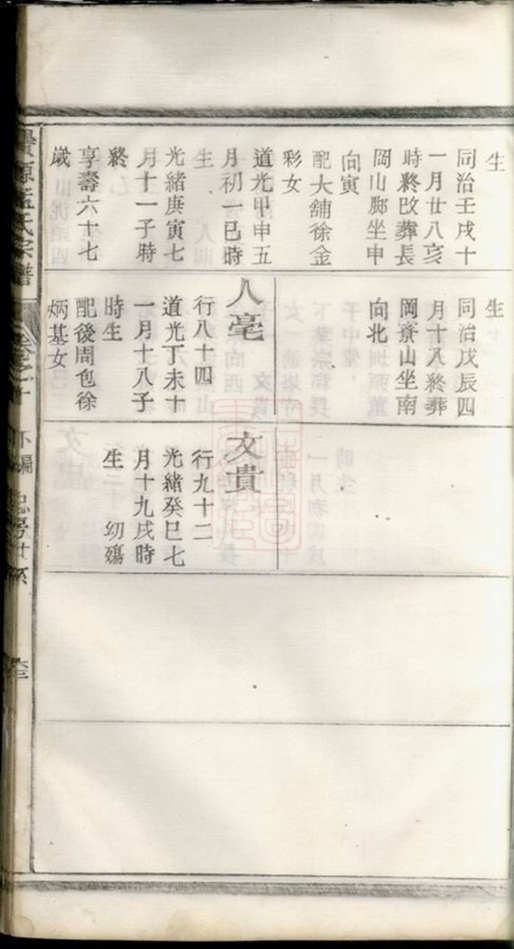 生
同治壬戌十
一月廿八亥
時終改葬長
岡山脚坐申
向寅
配大舖徐金
彩女
道光甲申五
月初一巳時
生
光緒庚寅七
月十一子時
終
享壽六十七
歲
生
同治戊辰四
月十八終葬
岡寮山坐南
向北
人毫
行八十四
道光丁未十
一月十八子
時生
配後周包徐
炳基女
文貴
行九十二
光緒癸巳七
月十九戌時
生 幼殤
孟氏宗譜